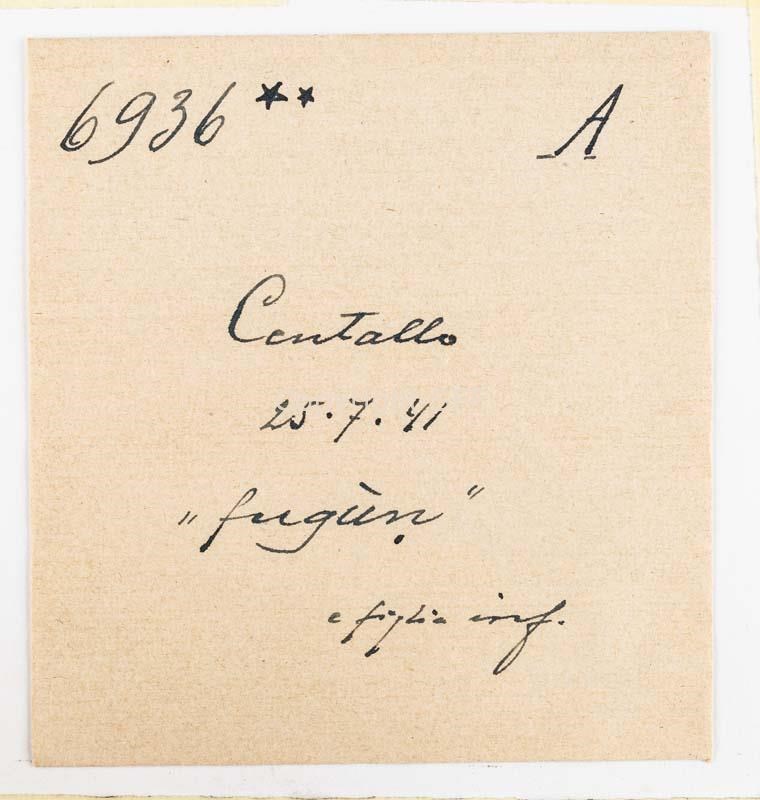 6936 ★★ A
Centallo
25.7.41
„fugùṇ"
e figlia inf.